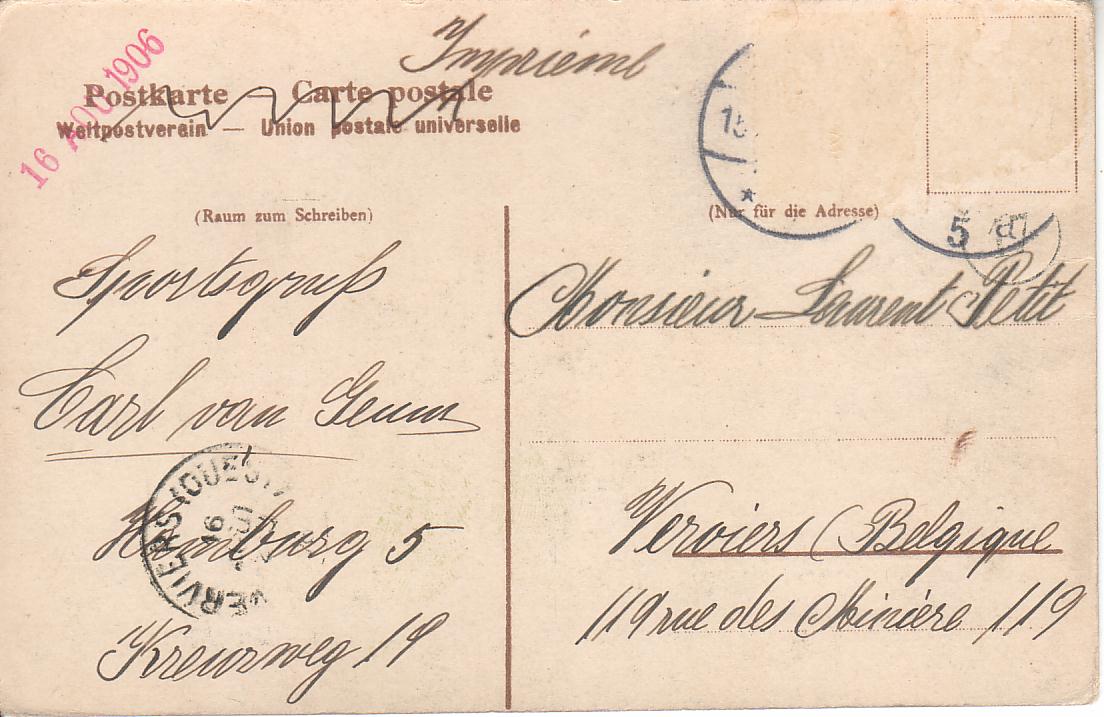 Imprieme
16 AOU 1906
Postkarte — Carte postale
Weltpostverein — Union postale universelle
15
5
(Raum zum Schreiben)
(Nur für die Adresse)
Sportsgruß
Carl van
Hamburg 5
Kreuzweg 19
VERVIERS (OUEST)
16
Monsieur Laurent Petit
Verviers (Belgique
119 rue des Minière 119